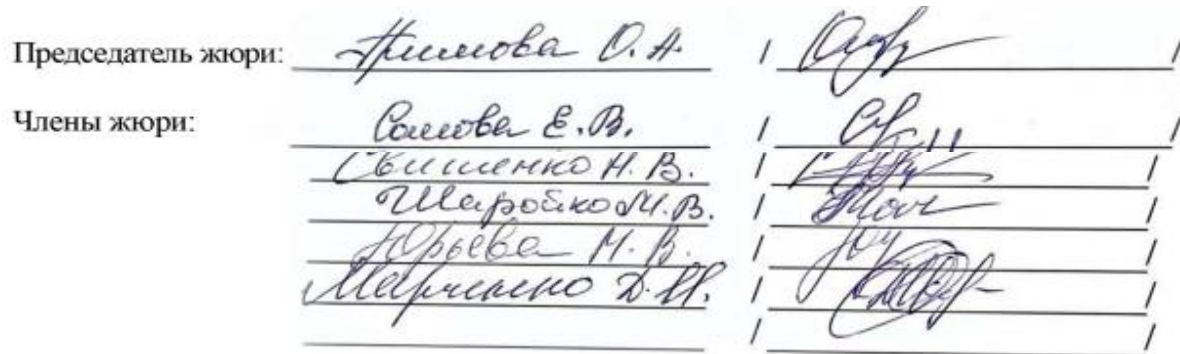 Председатель жюри: О. А. / /
Члены жюри: Сомова Е. В. / /
Свищенко Н. В. / /
Шаройко М. В. / /
Юрьева М. В. / /
Марченко Д. И. / /
/ /